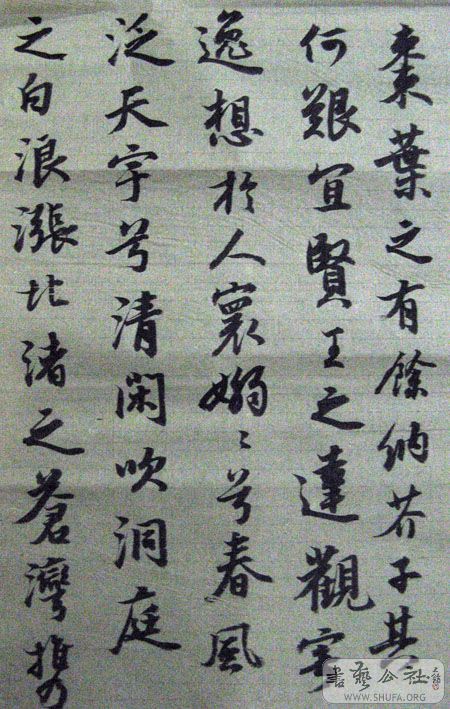 棗葉之有餘納芥子其
何艱宜賢王之達觀寄
逸想於人寰嫋〻兮春風
泛天宇兮清閑吹洞庭
之白浪漲北渚之蒼灣攜
書藝公社
WWW.SHUFA.ORG